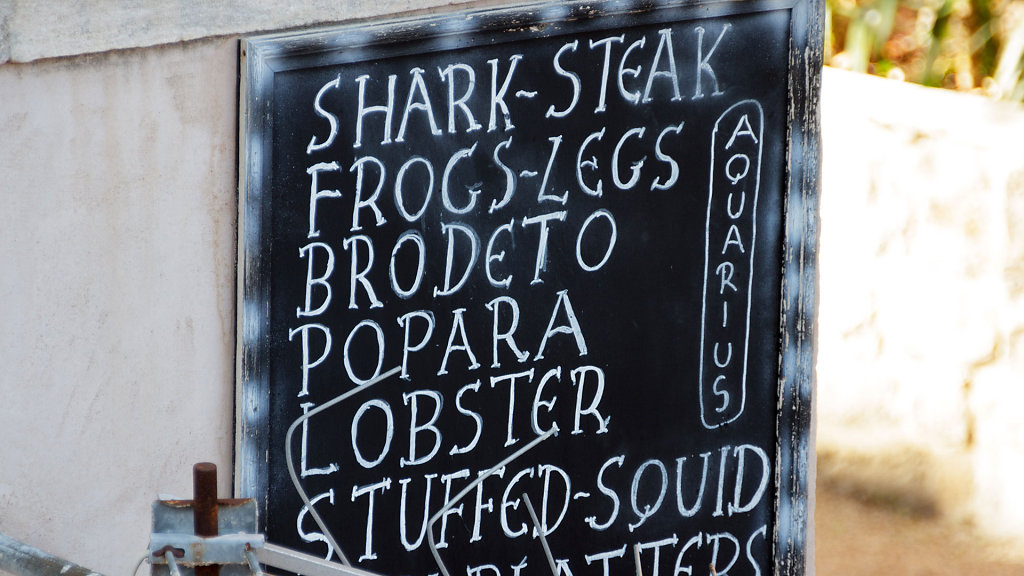 SHARK-STEAK
FROGS-LEGS
BRODETO
POPARA
LOBSTER
STUFFED-SQUID
PLATTERS
AQUARIUS